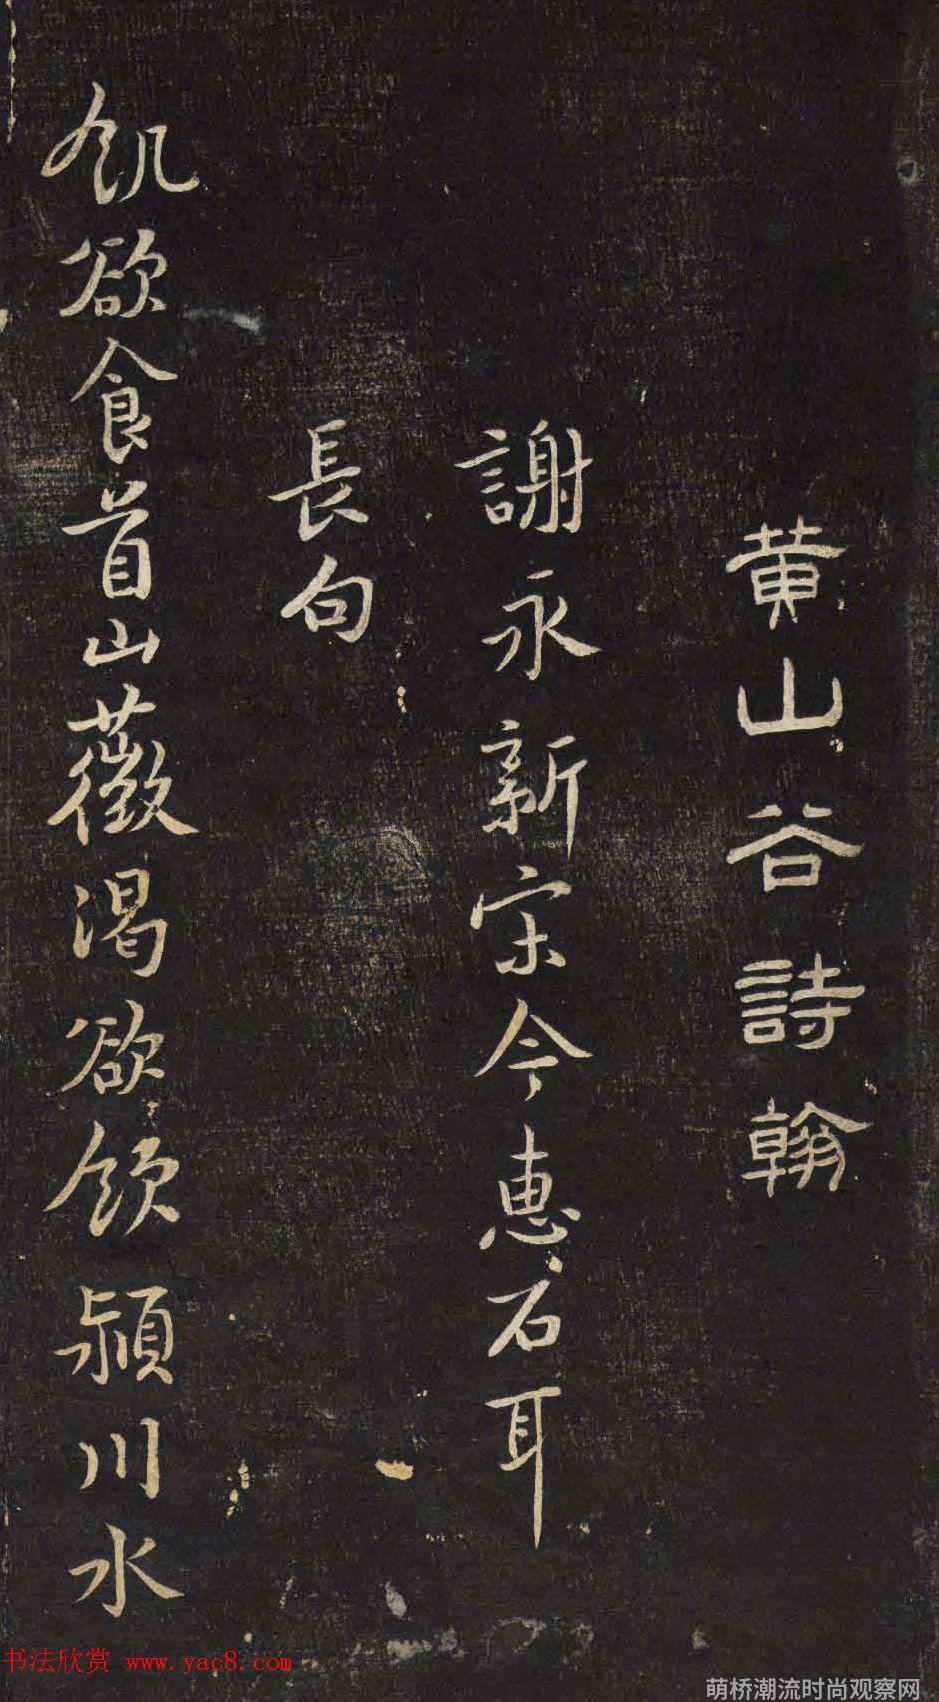 黄山谷詩翰
謝永新宋令惠石耳
長句
飢欲食首山薇渴欲飲潁川水
书法欣赏 www.yac8.com
萌桥潮流时尚观察网